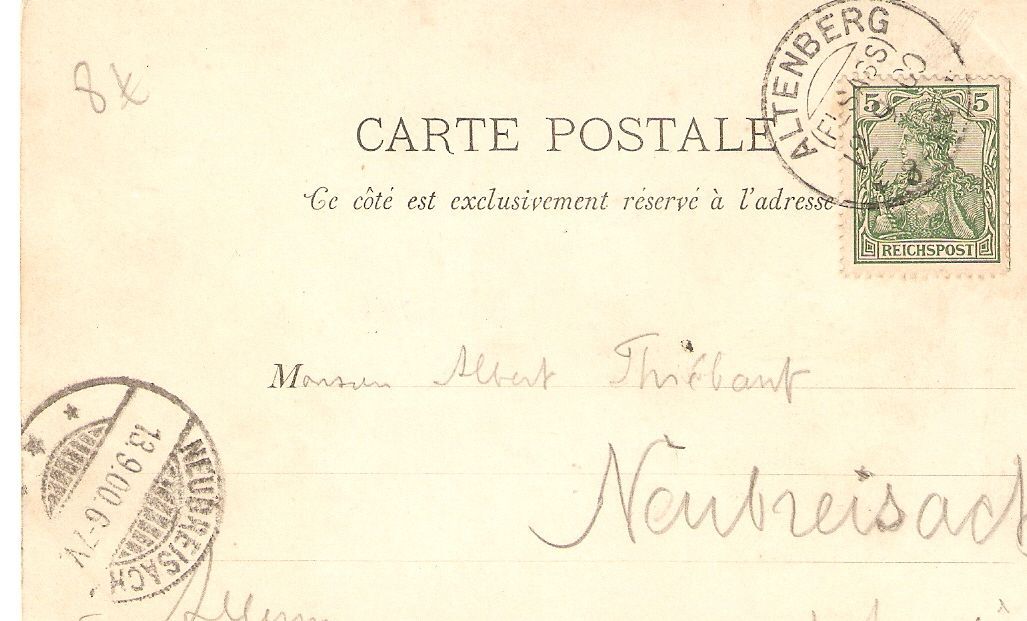 8x
ALTENBERG
(ELSASS)
5 5
REICHSPOST
CARTE POSTALE
Ce côté est exclusivement réservé à l'adresse
Monsieur Albert Thiébaut
Neubreisach
NEUBREISACH
13.9.00.6-7V.